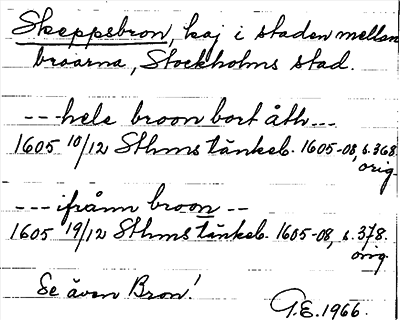 Skeppsbron, kaj i staden mellan
broarna, Stockholms stad.
---hele broon bort åth---
1605 10/12 Sthms tänkeb. 1605-08, s. 368.
orig.
---ifrånn broon--
1605 19/12 Sthms tänkeb. 1605-08, s. 378.
orig.
Se även Bron!
G.E. 1966.